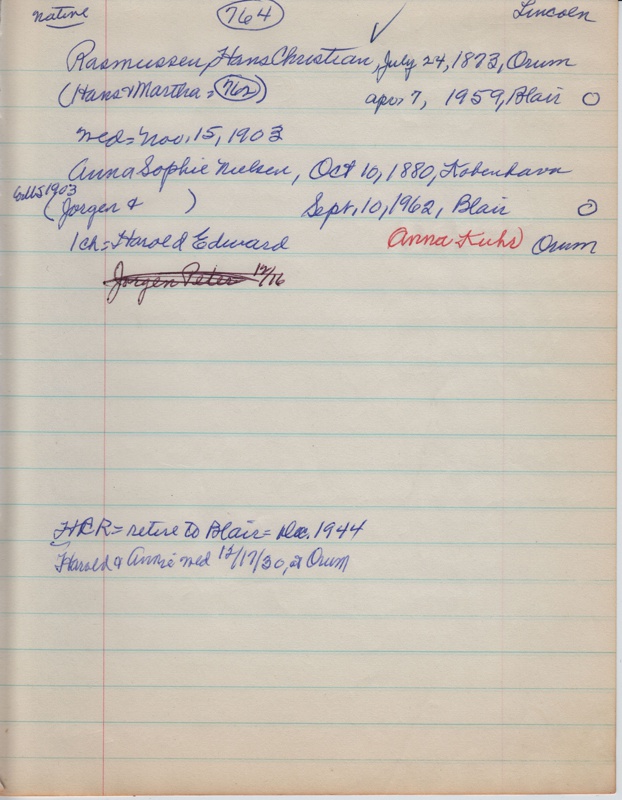 native 764 Lincoln
✓
Rasmussen, Hans Christian, July 24, 1873, Orum
(Hans & Martha = 762) apr. 7, 1959, Blair O
wed = Nov. 15, 1903
Anna Sophie Nielsen, Oct 10, 1880, Kobenhavn
1903
(Jorgen & ) Sept. 10, 1962, Blair O
1 ch = Harold Edward Anna Kuhr Orum
Jorgen Peter 12/16
HCR = retire to Blair = Dec. 1944
Harold & Annie wed 12/17/30, at Orum